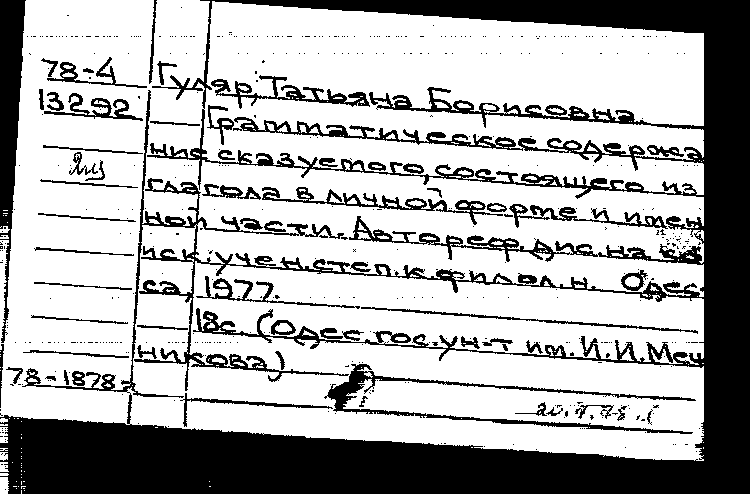 78-4 Гуляр, Татьяна Борисовна.
13292 Грамматическое содержа
ние сказуемого, состоящего из
2из
глагола в личной форме и имен
ной части. Автореф. дис. на со
иск. учен. степ. к. филол. н. Одес-
са, 1977.
18с. (Одес. гос. ун-т им. И.И. Меч
никова)
78-1878а